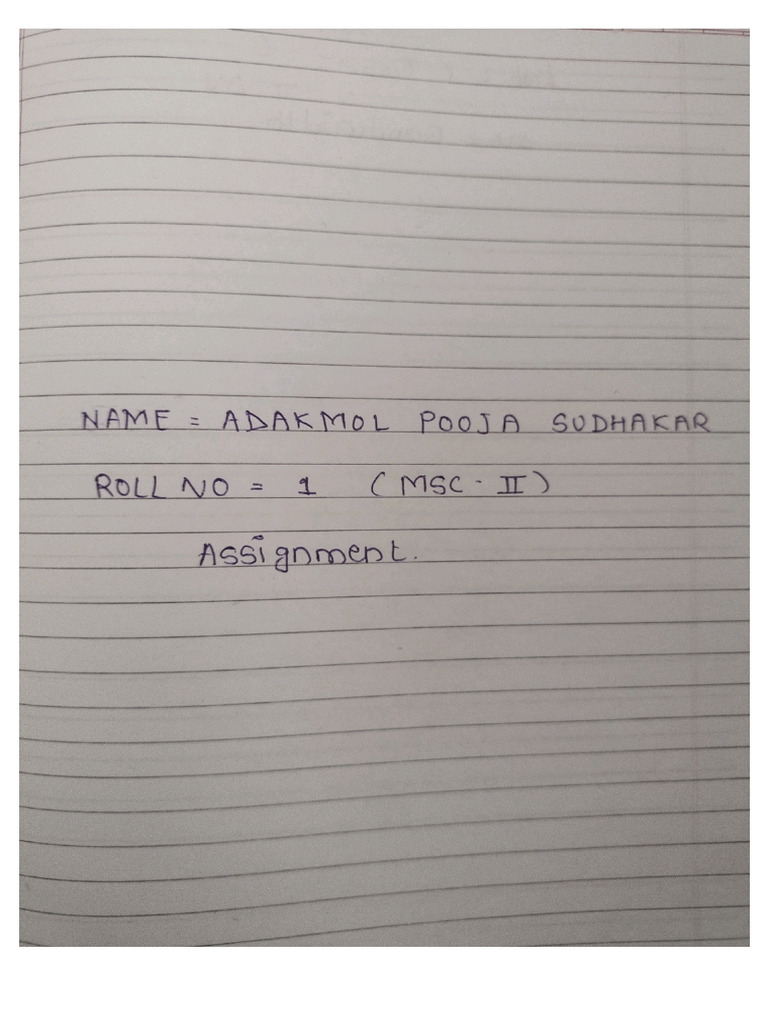 NAME = ADAKMOL POOJA SUDHAKAR
ROLL NO = 1 (MSC - II)
Assignment.